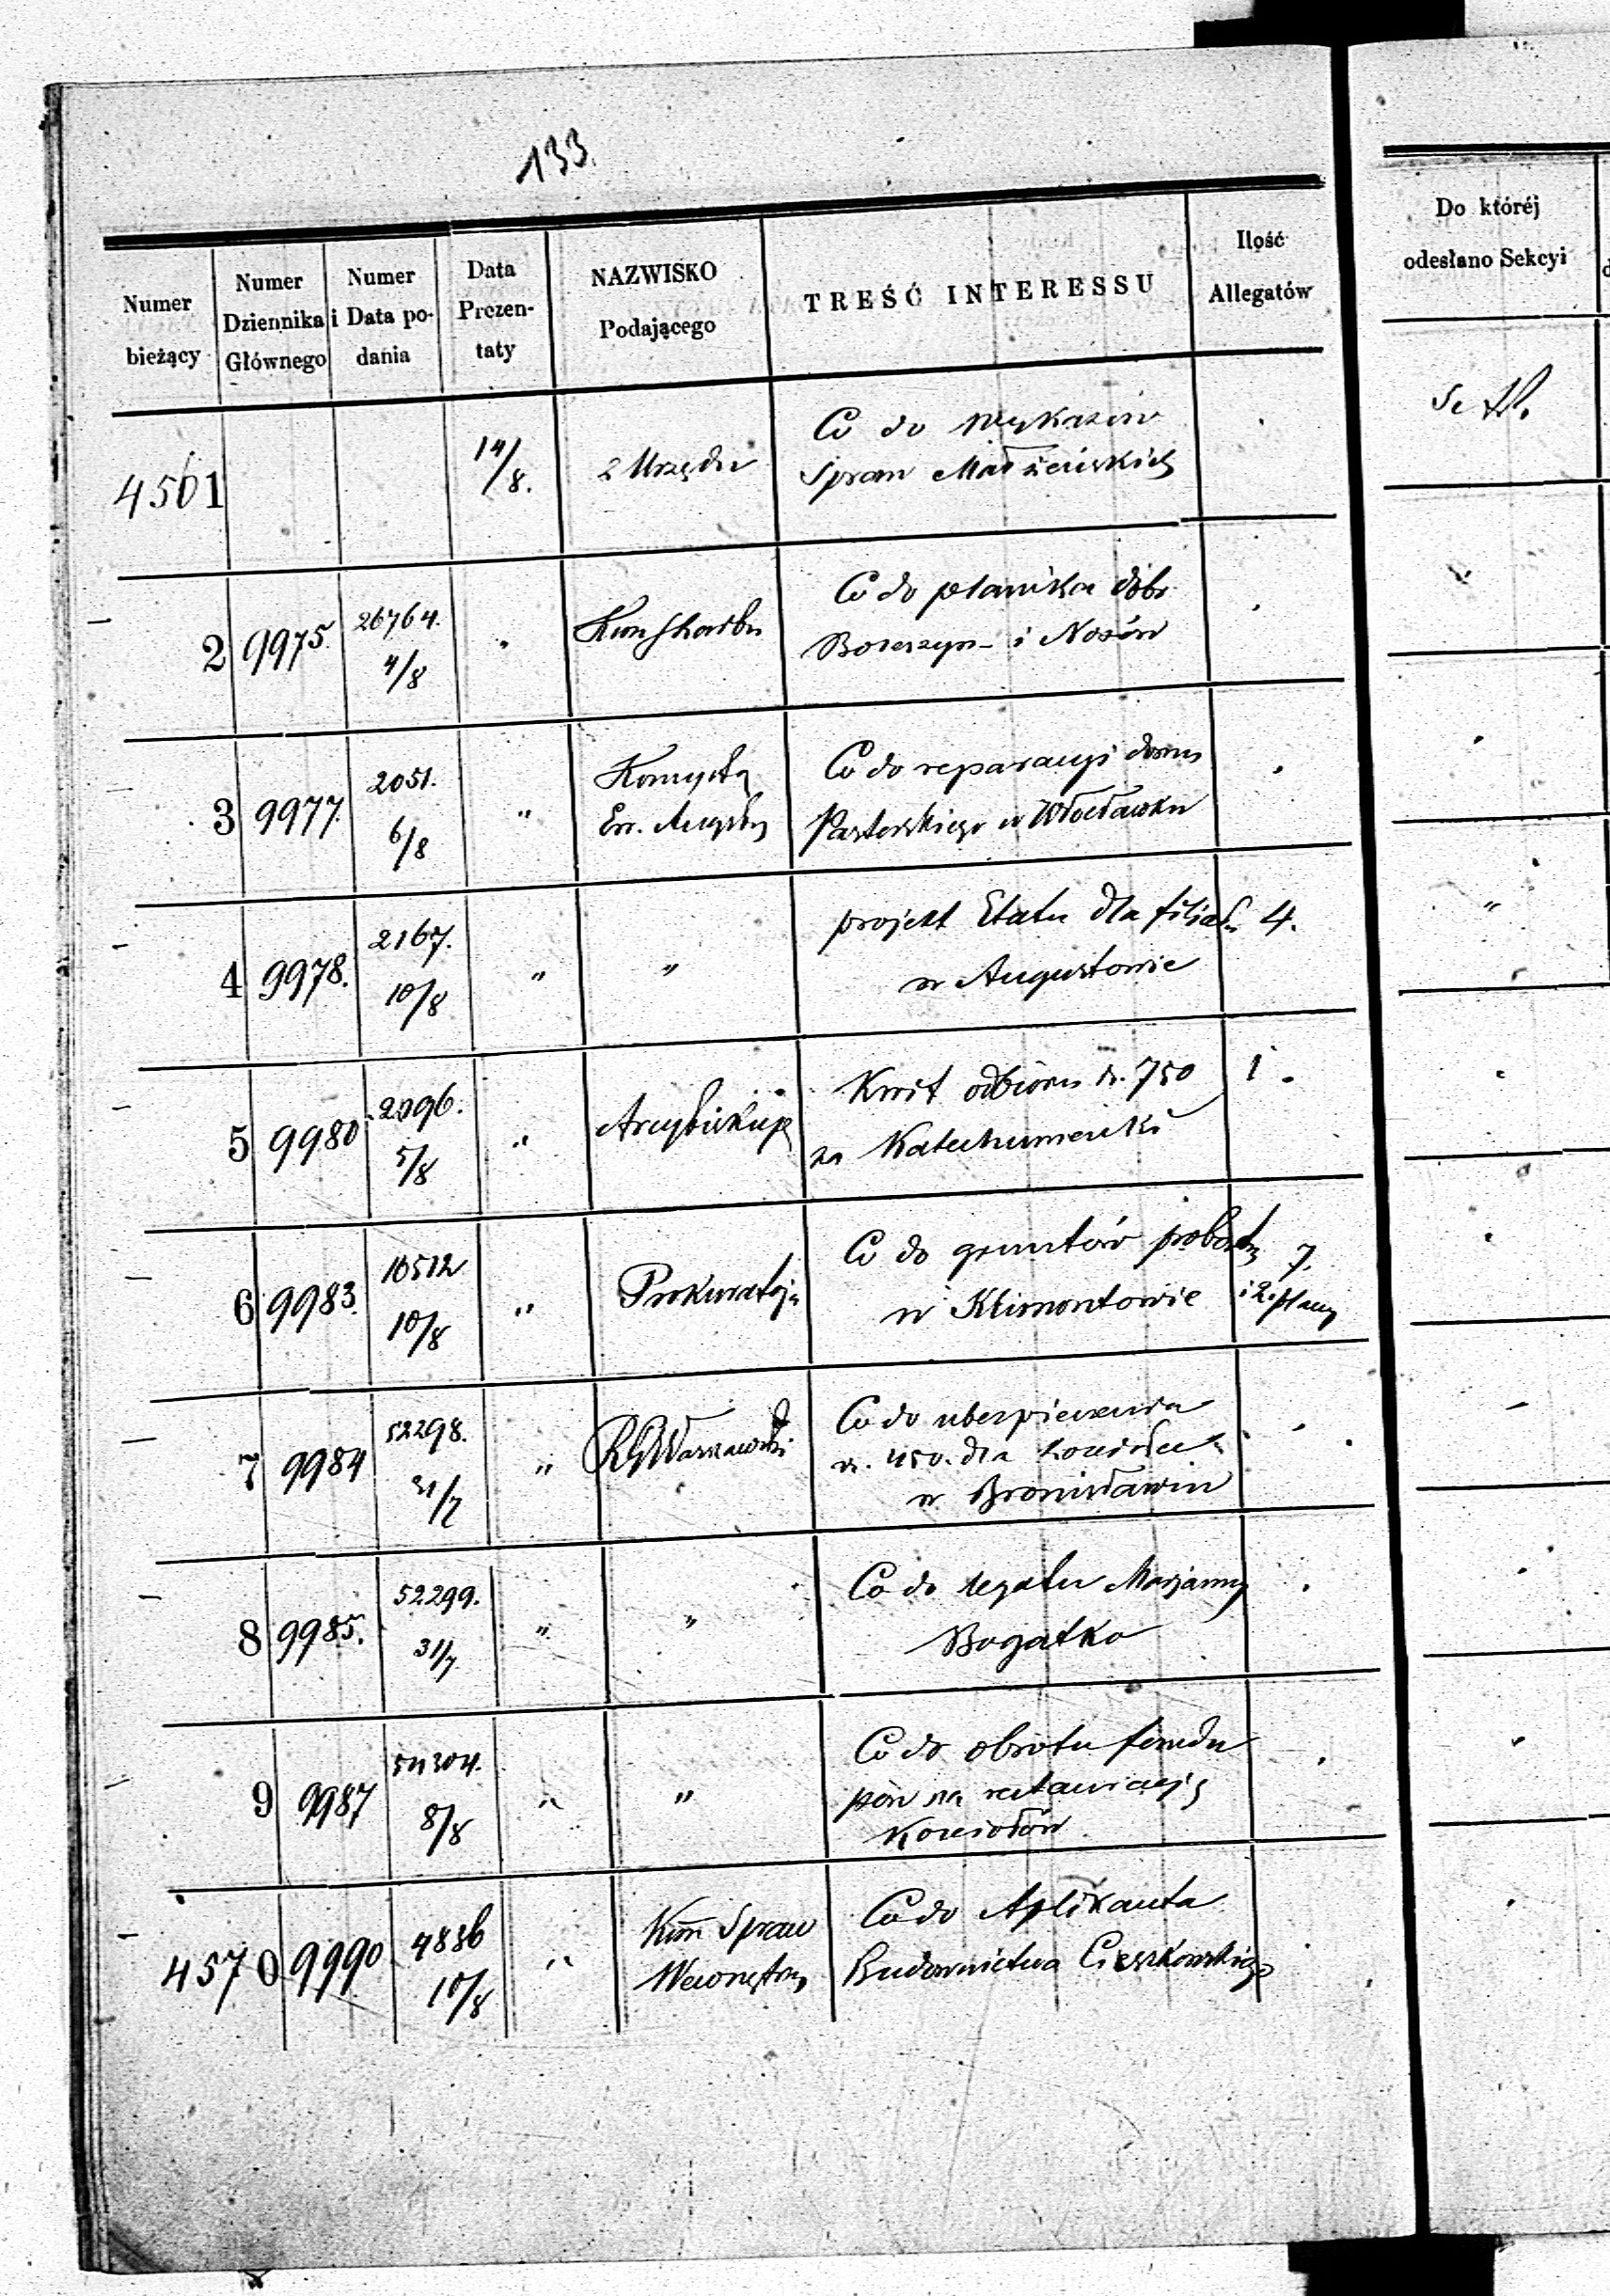 133.
Numer bieżący
Numer Dziennika Głównego
Numer i Data podania
Data Prezentaty
NAZWISKO Podającego
TREŚĆ INTERESSU
Ilość Allegatów
Do któréj odesłano Sekcyi
4561 14/8. z Urzędu Co do wykazów
Spraw Małżeńskich
2 9975. 26764. 4/8 Kom Skarbu Co do
i Nosów
3 9977. 2051. 6/8 " Konsystz Ew. Augsbs Co do reparacyi domu
Pastorskiego w Włocławku
4 9978. 2167. 10/8 " " projekt Etatu dla filiał. 4.
w Augustowie
5 9980 2096. 5/8 " Arcybiskup Kwit odbioru r. 750 1.
na Katechumenki
6 9983. 10512 10/8 " Prokuratorja Co do gruntów probostz 7.
w Klimontowie i 2. plany
7 9984 52298. 31/7 " RG Warszawski Co do ubezpieczenia
r. 450. dla kościoła
w Bronisławiu
8 9985. 52299. 31/7 " " Co do legatu Marjanny
Bogatko
9 9987 54304. 8/8 " " Co do obrotu fundu
pów na restauracyją
Kościołów
4570 9990 4836 10/8 " Kom Spraw Wewnętrz Co do Aplikanta
Budownictwa Cieszkowskiego